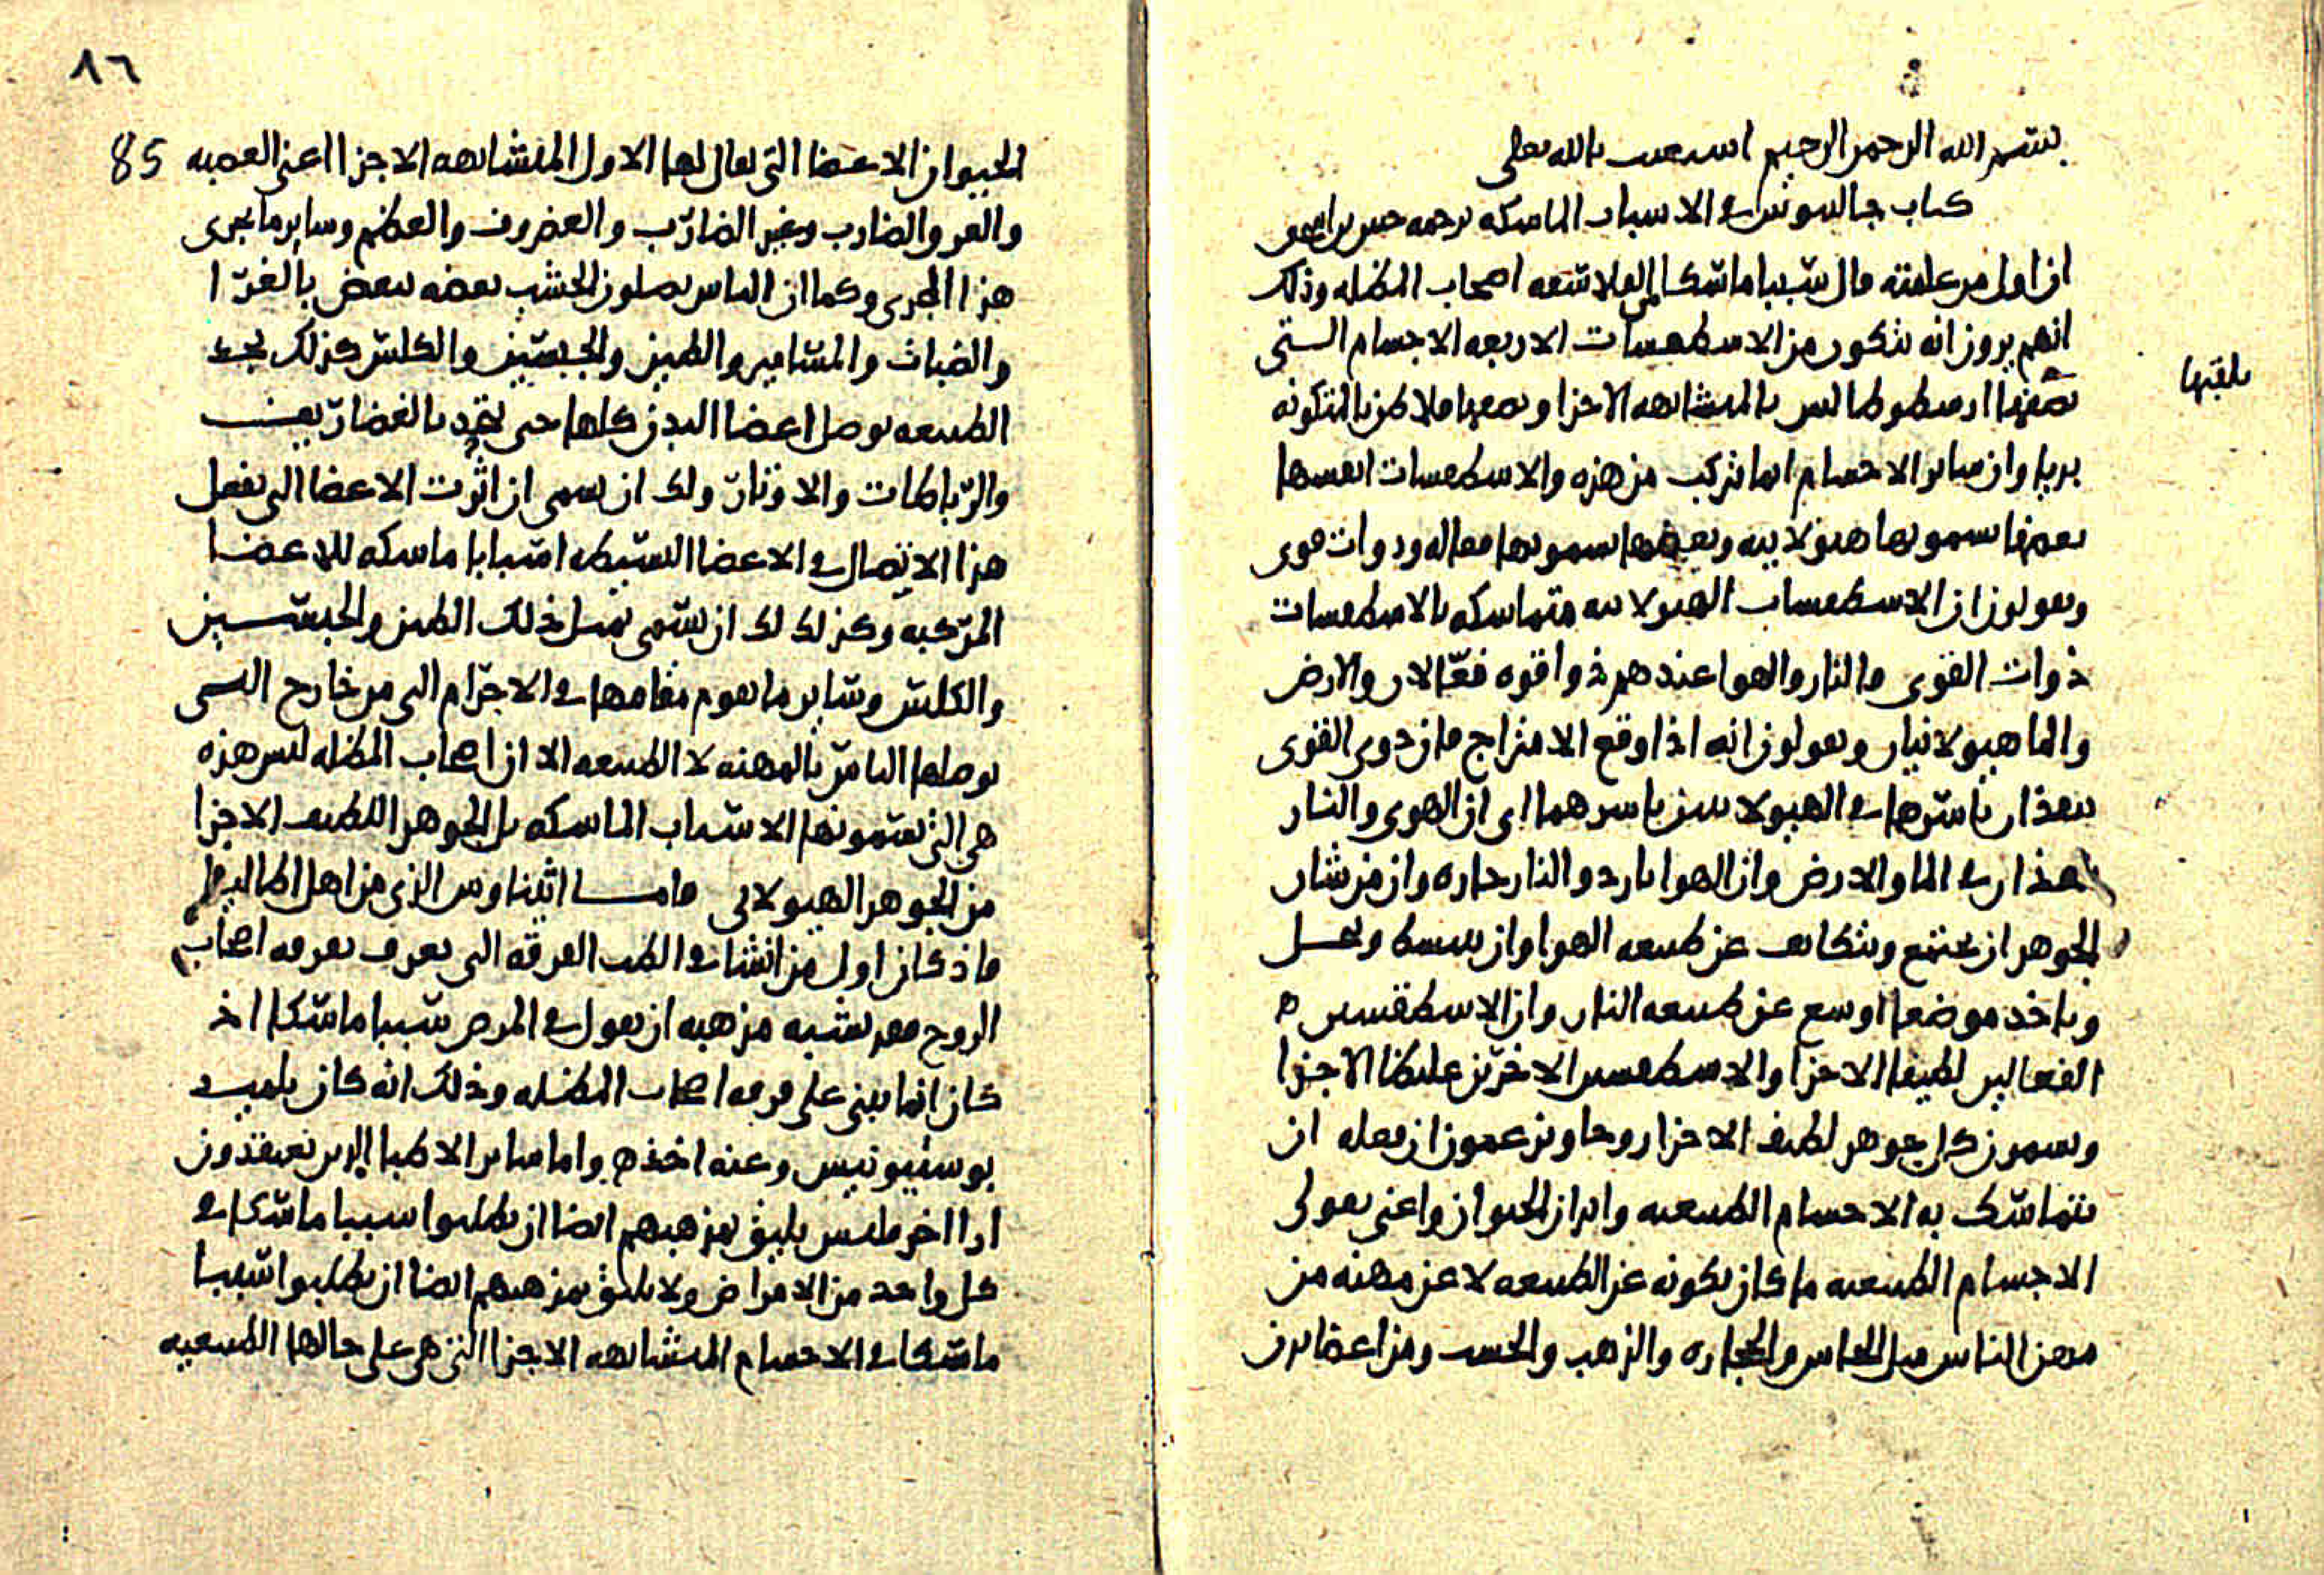 بسم الله الرحمن الرحيم استعنت بالله تعلى
كتاب جالينوس في الاسباب الماسكه ترجمه حنين بن اسحق
ان اول من علمته قال سببا ماسكا الفلاسفه اصحاب المظله وذلك
انهم يرون انه يتكون من الاسطقسات الاربعه الاجسام التي
يلقبها
يصفها ارسطوطالس بالمتشابهه الاجزا ويصفها فلاطن بالمتكونه
بريا وان ساير الاجسام انما تركب من هذه والاسطقسات انفسها
بعضها يسمونها هيولانيه وبعضها يسمونها فعاله وذوات قوى
ويقولون ان الاسطقسات الهيولانيه متماسكه بالاسطقسات
ذوات القوى والنار والهوا عندهم ذوا قوه فعاله والارض
والما هيولانيان ويقولون انه اذا وقع الامتزاج فان ذوى القوى
ينفذان باسرها في الهيولانيين باسرهما اى ان الهوى والنار
ينفذان في الما والارض وان الهوا بارد والنار حاره وان من شان
الجوهر ان يجتمع ويتكاثف عن طبيعه الهوا وان ينبسط وينحل
وياخذ موضعا اوسع عن طبيعه النار وان الاسطقسين
الفعالين لطيفا الاجزا والاسطقسين الاخرين غليظا الاجزا
ويسمون كل جوهر لطيف الاجزا روحا ويزعمون ان فعله ان
يتماسك به الاجسام الطبيعيه وابدان الحيوان واعنى بقولى
الاجسام الطبيعيه ما كان تكونه عن الطبيعه لا عن مهنه من
مهن الناس مثل النحاس والحجاره والذهب والخشب ومن اعضا بدن
٨٦
85
الحيوان الاعضا التي يقال لها الاول المتشابهه الاجزا اعنى العصبه
والعروق الضارب وغير الضارب والغضروف والعظم وساير ما يجرى
هذا المجرى وكما ان الناس يصلون الخشب بعضه ببعض بالغرا
والضبات والمسامير والطين والجبسين والكلس كذلك نجد
الطبيعه توصل اعضا البدن كلها حتى يتحد بالغضاريف
والرباطات والاوتار ولك ان تسمى ان اثرت الاعضا التي تفعل
هذا الاتصال في الاعضا البسيطه اسبابا ماسكه للاعضا
المركبه وكذلك لك ان تسمى بمثل ذلك الطين والجبسين
والكلس وساير ما يقوم مقامها في الاجرام التي من خارج التي
يوصلها الناس بالمهنه لا الطبيعه الا ان اصحاب المظله ليس هذه
هى التي يسمونها الاسباب الماسكه بل الجوهر اللطيف الاجزا
من الجوهر الهيولانى فاما اثيناوس الذى من اهل اطاليه
فاذ كان اول من انشا في الطب الفرقه التي تعرف بفرقه اصحاب
الروح فقد يشبه مذهبه ان يقول في المرض سببا ماسكا اذ
كان انما يبنى على فرقه اصحاب المظله وذلك انه كان تلميذ
بوسيدونيس وعنه اخذ واما ساير الاطبا الذين يعتقدون
ارا اخر فليس يليق بمذهبهم ايضا ان يطلبوا سببا ماسكا في
كل واحد من الامراض ولا يليق بمذهبهم ايضا ان يطلبوا سببا
ماسكا في الاجسام المتشابهه الاجزا التي هى على حالها الطبيعيه